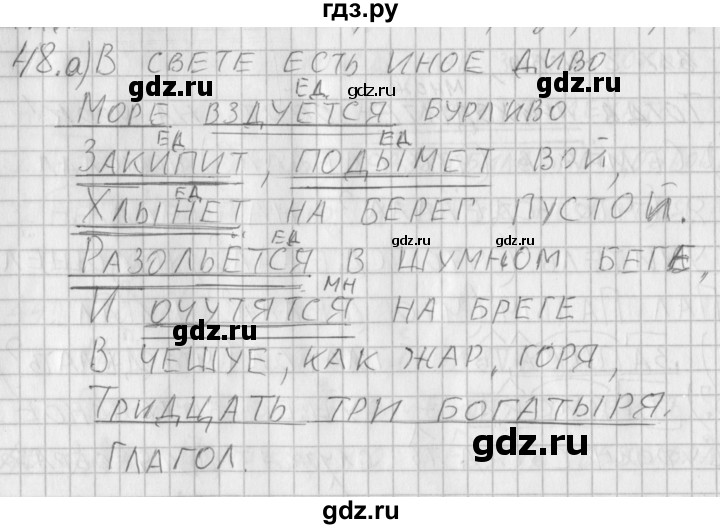 гдз.ру
48.а) В СВЕТЕ ЕСТЬ ИНОЕ ДИВО
gdz.ru ЕД gdz.ru gdz.ru
МОРЕ ВЗДУЕТСЯ БУРЛИВО
ЕД ЕД
ЗАКИПИТ, ПОДЫМЕТ ВОЙ,
ЕД
ХЛЫНЕТ НА БЕРЕГ ПУСТОЙ.
ЕД gdz.ru gdz.ru
РАЗОЛЬЕТСЯ В ШУМНОМ БЕГЕ,
МН
И ОЧУТЯТСЯ НА БРЕГЕ
gdz.ru gdz.ru
В ЧЕШУЕ, КАК ЖАР, ГОРЯ,
ТРИДЦАТЬ ТРИ БОГАТЫРЯ.
gdz.ru
ГЛАГОЛ.
gdz.ru